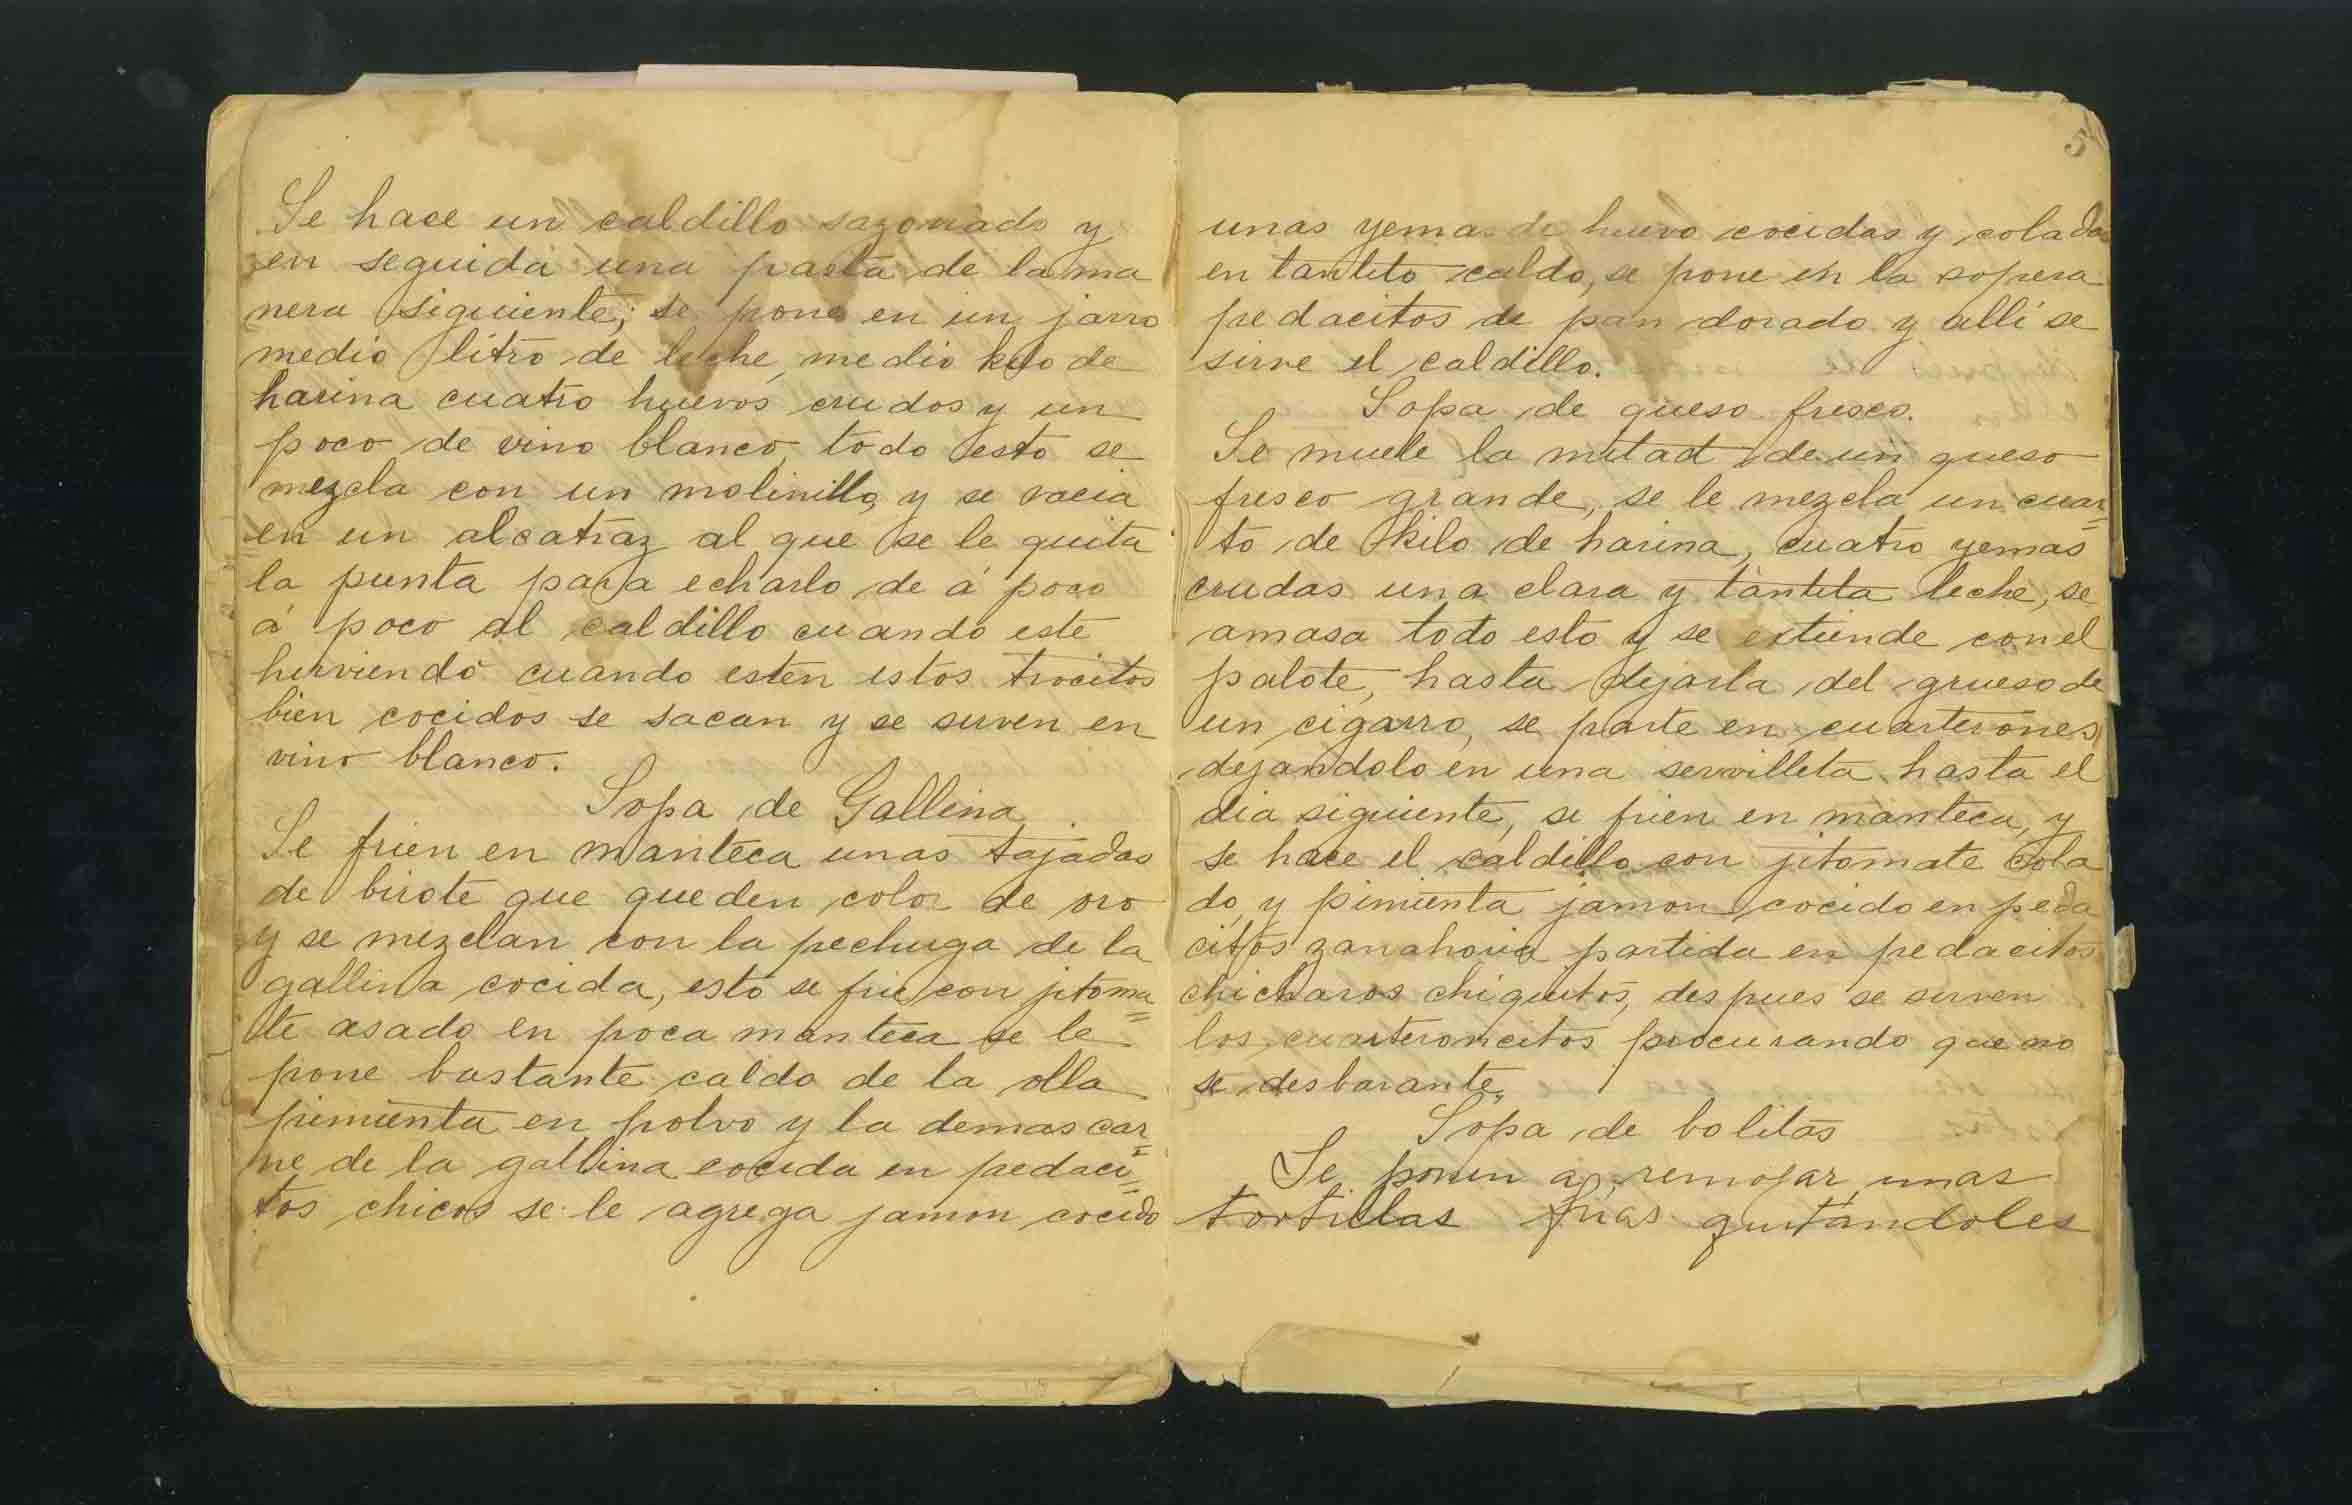 Se hace un caldillo sazonado y
en seguida una pasta de la ma
nera siguiente; se pone en un jarro
medio litro de leche, medio kilo de
harina cuatro huevos crudos y un
poco de vino blanco, todo esto se
mezcla con un molinillo, y se vacia
en un alcatraz al que se le quita
la punta para echarlo de á poco
á poco al caldillo cuando esté
hirviendo cuando esten estos trocitos
bien cocidos se sacan y se sirven en
vino blanco.
Sopa de Gallina
Se frien en manteca unas tajadas
de birote que queden color de oro
y se mezclan con la pechuga de la
gallina cocida, esto se frie con jitoma=
te asado en poca manteca se le
pone bastante caldo de la olla
pimienta en polvo y la demas car=
ne de la gallina cocida en pedaci=
tos chicos se le agrega jamon cocido
5
unas yemas de huevo cocidas y coladas
en tantito caldo, se pone en la sopera
pedacitos de pan dorado y allí se
sirve el caldillo.
Sopa de queso fresco.
Se muele la mitad de un queso
fresco grande, se le mezcla un cuar=
to de kilo de harina, cuatro yemas
crudas una clara y tantita leche, se
amasa todo esto y se extiende con el
palote, hasta dejarla del grueso de
un cigarro, se parte en cuarterones
dejandolo en una servilleta hasta el
dia siguiente, se frien en manteca, y
se hace el caldillo con jitomate cola
do, y pimienta jamon cocido en peda
citos zanahoria partida en pedacitos
chicharos chiquitos, despues se sirven
los cuarteroncitos procurando que no
se desbarante.
Sopa de bolitas
Se ponen a remojar unas
tortillas frias quitándoles